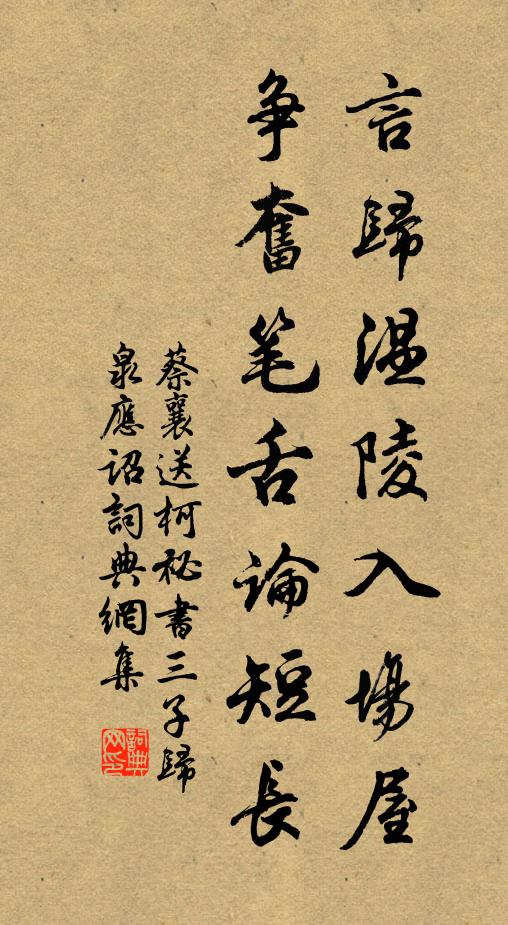 言歸温陵入場屋
争奮笔舌論短長
蔡襄送柯祕書三子歸
泉應詔詞典網集
詞典網